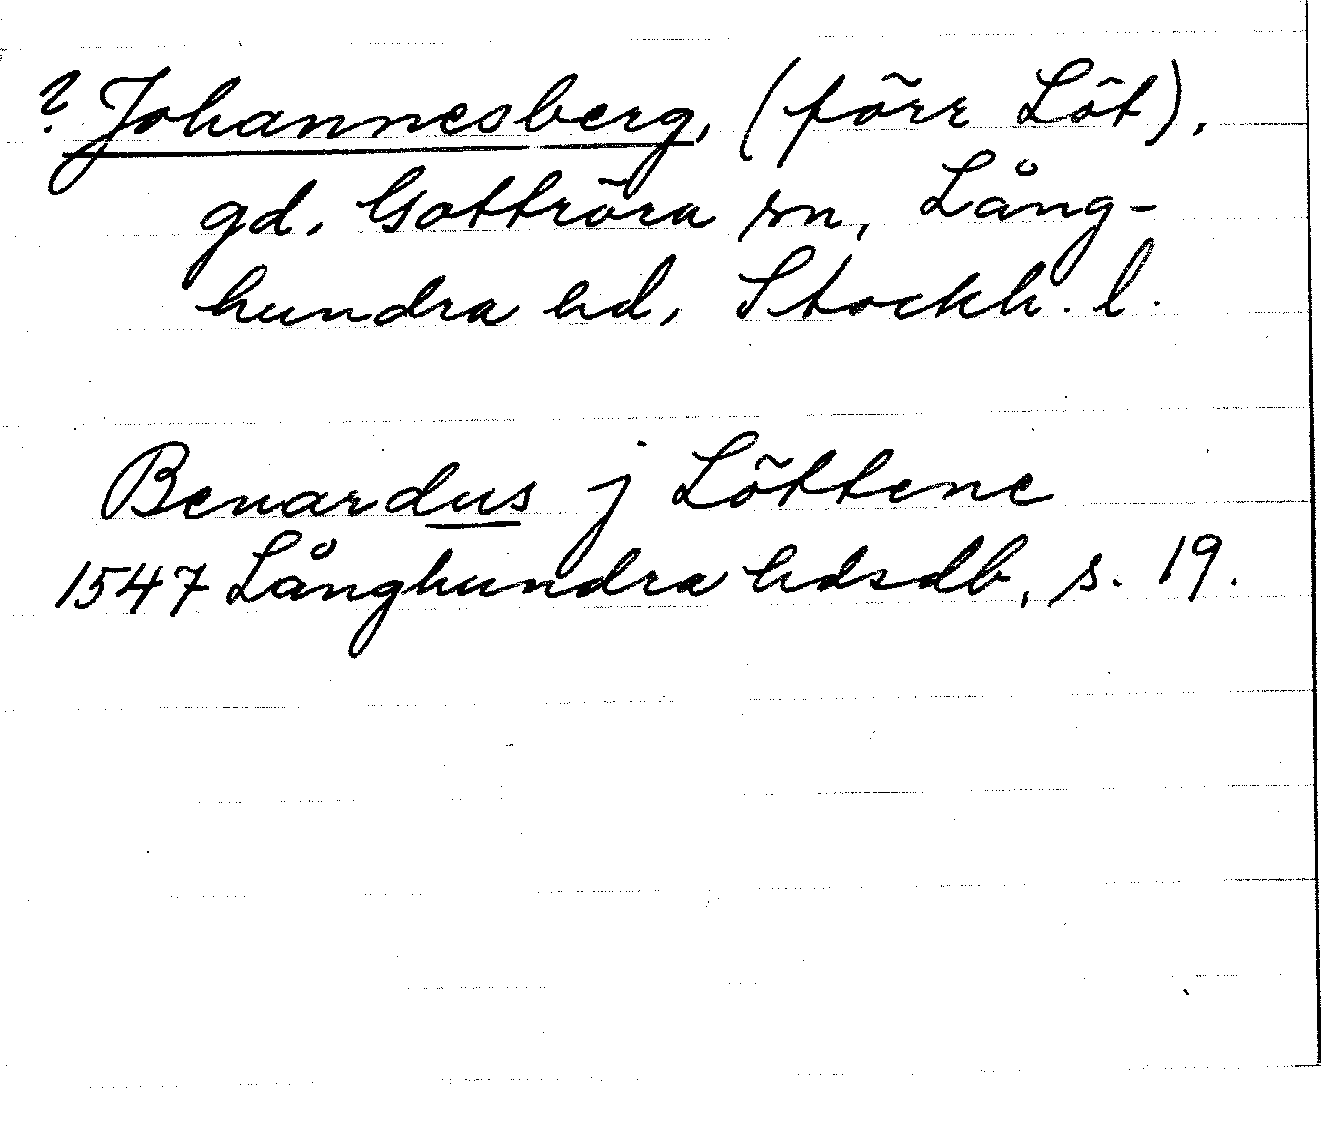 ? Johannesberg, (förr Löt),
gd, Gottröra sn, Lång-
hundra hd, Stockh. l.
Benardus j Löttene
1547 Långhundra hdsdb, s. 19.